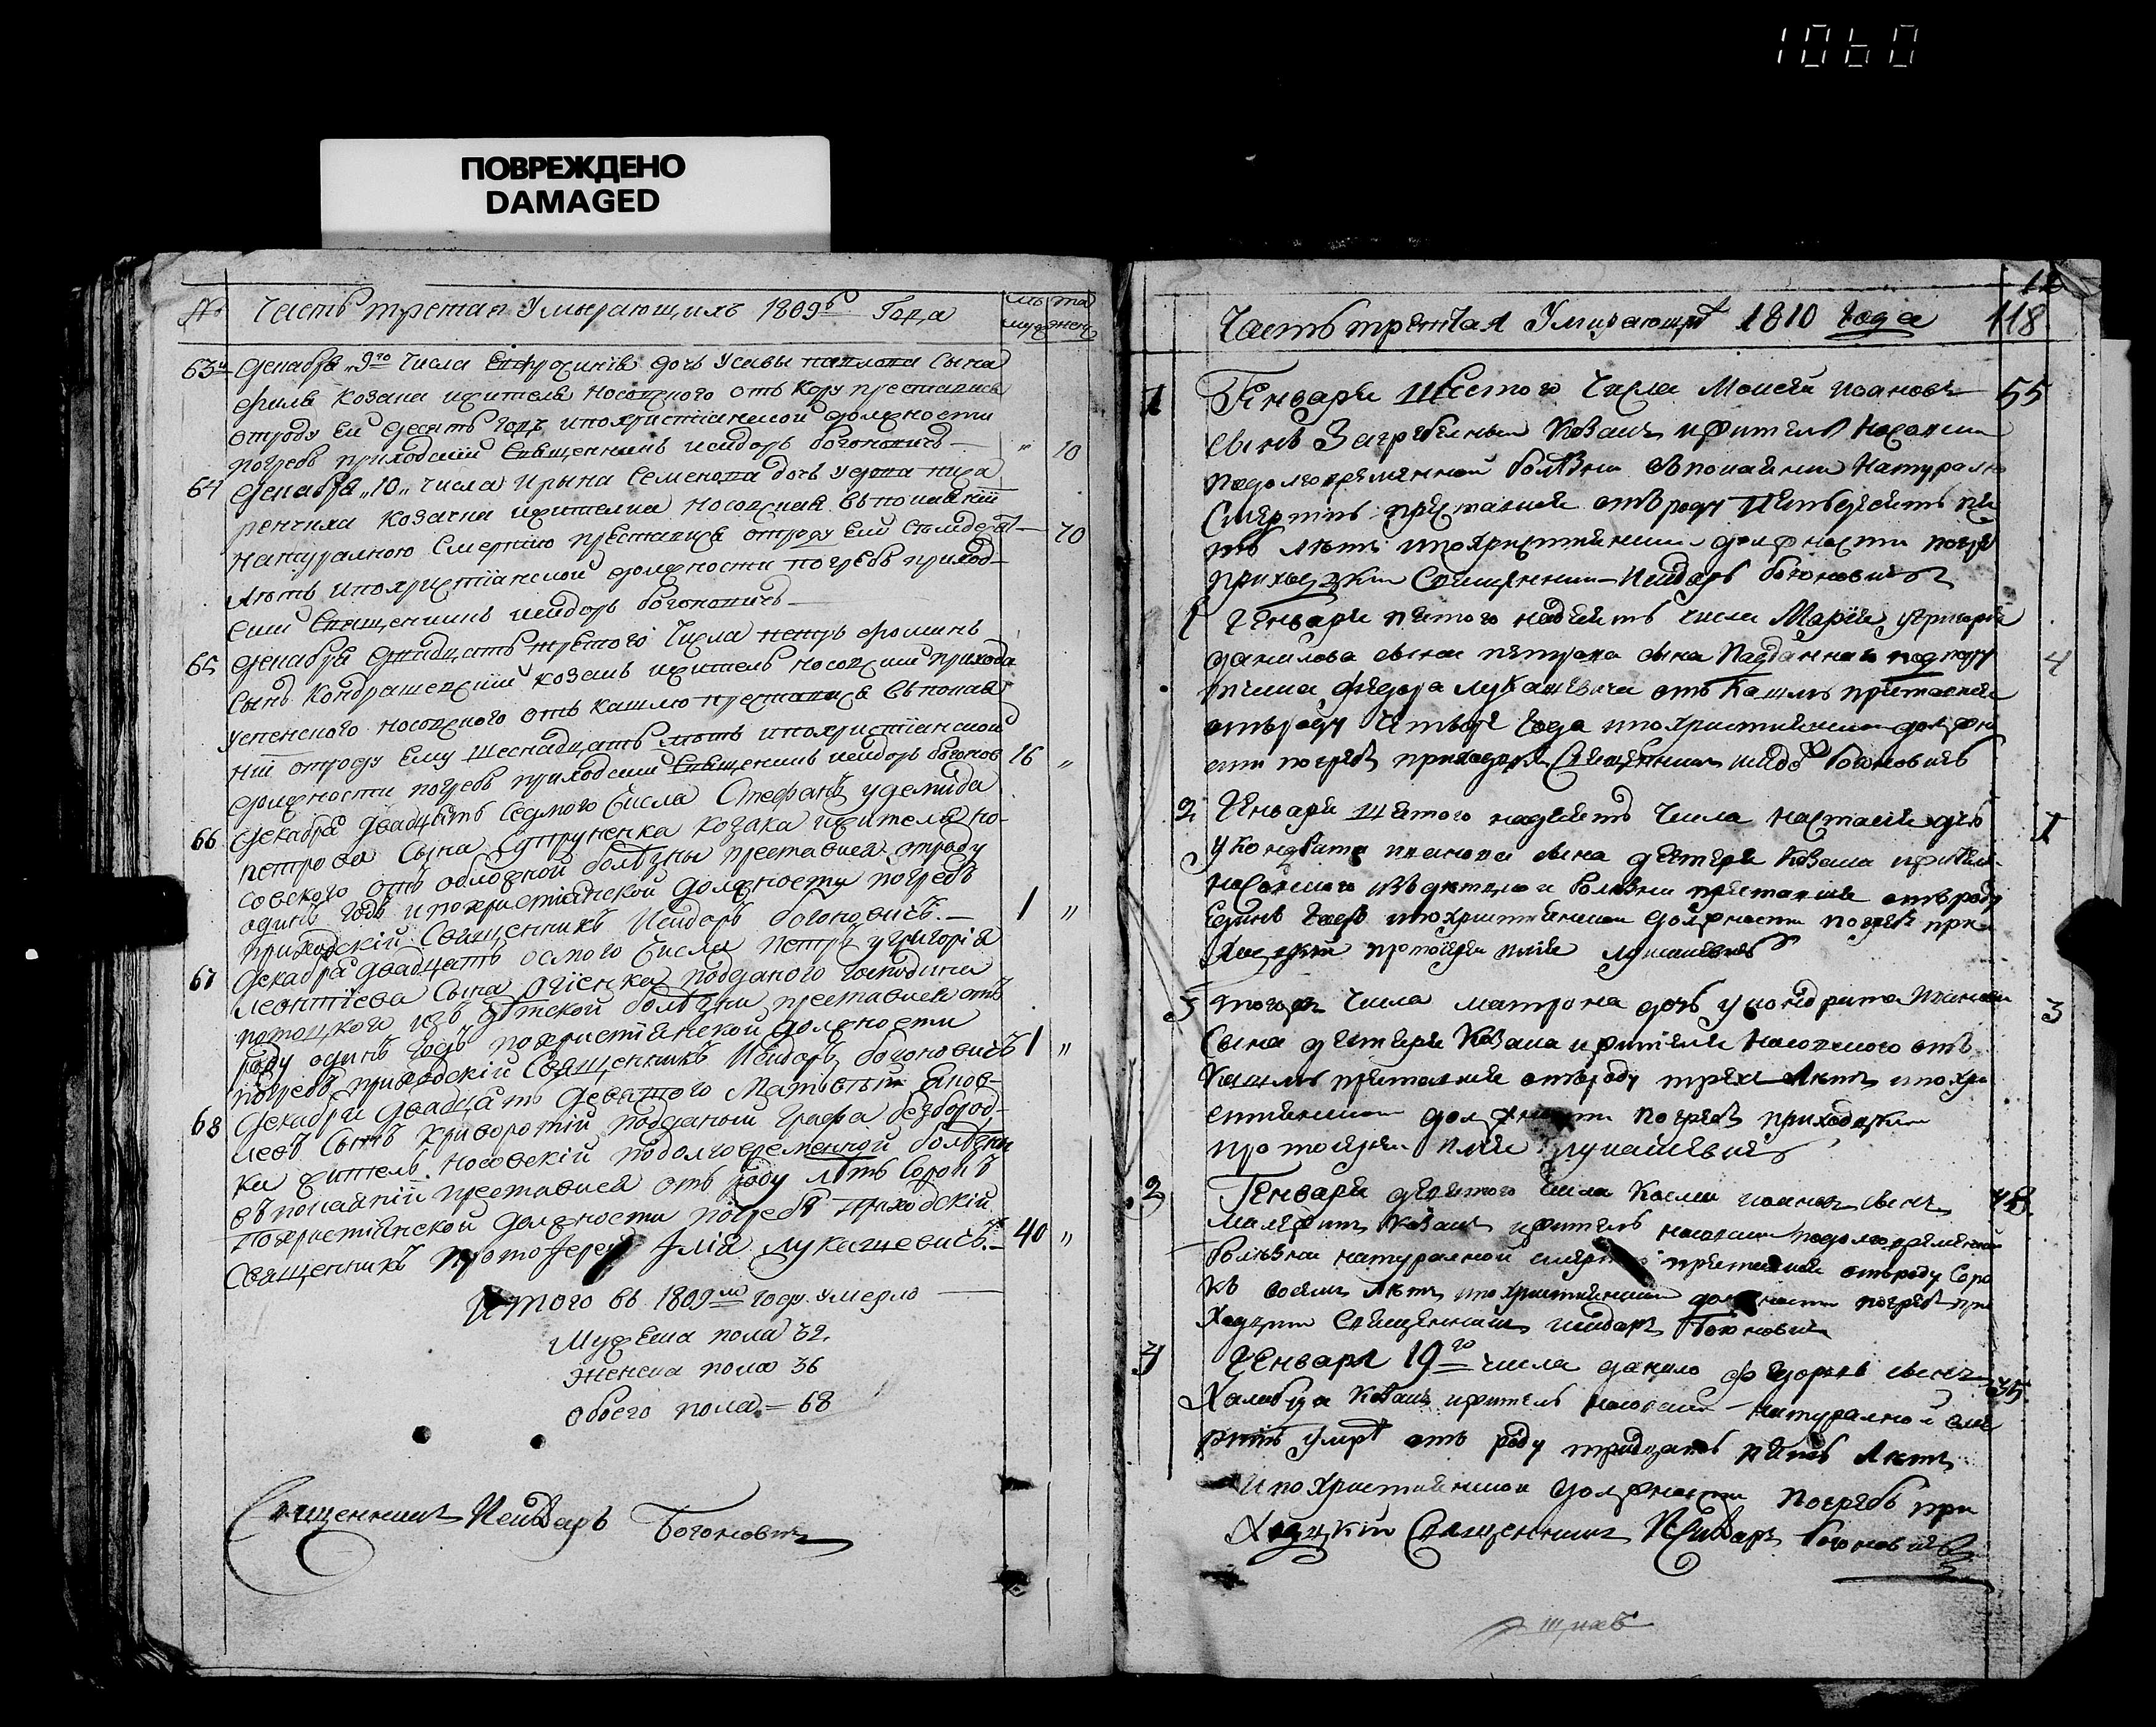 1060
ПОВРЕЖДЕНО
DAMAGED
№ Часть третая Умирающихъ 1809 Года
муж жен
63 Декабря 9го числа дочь Усавы сына
козака жителя Носовского отъ кору преставися
отроду ей десять годъ ипохристіанской должности
погребъ приходскій Священникъ Исидоръ Богоновичъ „ 10
64 Декабря „10„ числа Ирына Семенова дочь
козачка жителка Носовская въ покаянїи
натуралною смертію преставися отроду ей семдесят 70
лѣтъ ипохристіанской должности погребъ приход
скій Священникъ Исидоръ Богоновичъ
65 Декабря двадцать третого числа петръ фоминъ
сынъ Кондрашевскій козакъ житель носовскій прихода
успенского носовского отъ кашлю преставися въ покая
нїи отроду ему шеснадцать лѣтъ ипохристіанской
должности погребъ приходскій Священникъ Исидоръ Богонов 16 „
66 Декабря двадцять седмого числа Стефанъ у демида
петрова сына Струненка козака жителя но-
совского отъ облодной болѣзны преставися отроду
одинъ годъ ипохристіанской должности погребъ
приходскій Священникъ Исидоръ Богоновичъ. 1 „
67 Декабря двадцать осмого числа петръ у григорія
леонтіева сына подданого господина
изъ дѣтской болѣзни преставися отъ
роду одинъ годъ похристіянской должности
погребъ приходскій Священникъ Исидоръ Богоновичъ 1 „
68 Декабря двадцать девятого Матвѣй Яков-
левъ сынъ Криворотій подданый графа безбород-
ки житель Носовскій подолговременной болѣзни
въ покаянїи преставися отъ роду лѣтъ сорокъ
похристіянской должности погребъ приходскій
Священникъ протоіерей Илія Лукашевичъ. 40 „
Итого въ 1809мъ году умерло
Мужеска пола 32.
Женска пола 36
Обоего пола 68
Священникъ Исидоръ Богоновичъ
12
Часть третчая Умирающи 1810 года 118
1 Генваря шестого числа Моисей Иоановъ 55
сынъ Загребелный козакъ житель Носовски
подолговременной болѣзни въ покаянии натурално
смертию преставися отъ роду пятьдесятъ пя
ть лѣтъ ипохристиянский должности погре
приходзкий Священникъ Исидоръ Богоновичъ
1 Генваря пятого надцять числа Мария у григория
данилова сына петрова сына подданного
федора Лукашевича отъ кашля преставися 4
отъ роду четыре года ипохристиянской должно
сти погребъ приходзкй Священникъ Исидоръ Богоновичъ
2 Генваря пятого надцять числа Настасия дочь 1
у Кондрата иванова сына дехтяря козака жителя
носовского изъ детцкой болезни преставися отъ роду
единъ годъ ипохристиянской должности погребъ при
ходзкий протоиерей илия лукашевичъ
3 Тогожъ числа матрона дочь у кондрата иванова 3
сына дехтяря козака жителя носовского отъ
кашлю преставися отъ роду трехъ лѣтъ ипохри
стиянской должности погребъ приходзкий
протоиерей илия лукашевичъ
2 Генваря девятого числа Косма иоановъ сынъ 48
козакъ житель носовский подолговременной
болѣзни натуралной смертию преставися отъ роду соро
къ восемъ лѣтъ ипохристиянской должности погребъ при
ходзкий Священникъ Исидоръ Богоновичъ
3 Генваря 19го числа данило федоровъ сынъ 35
Халабуда козакъ житель носовский натуралной сме
ртию умре отъ роду тридцать пять лѣтъ
ипохристиянской должности погребъ при
ходзкий Священникъ Исидоръ Богоновичъ